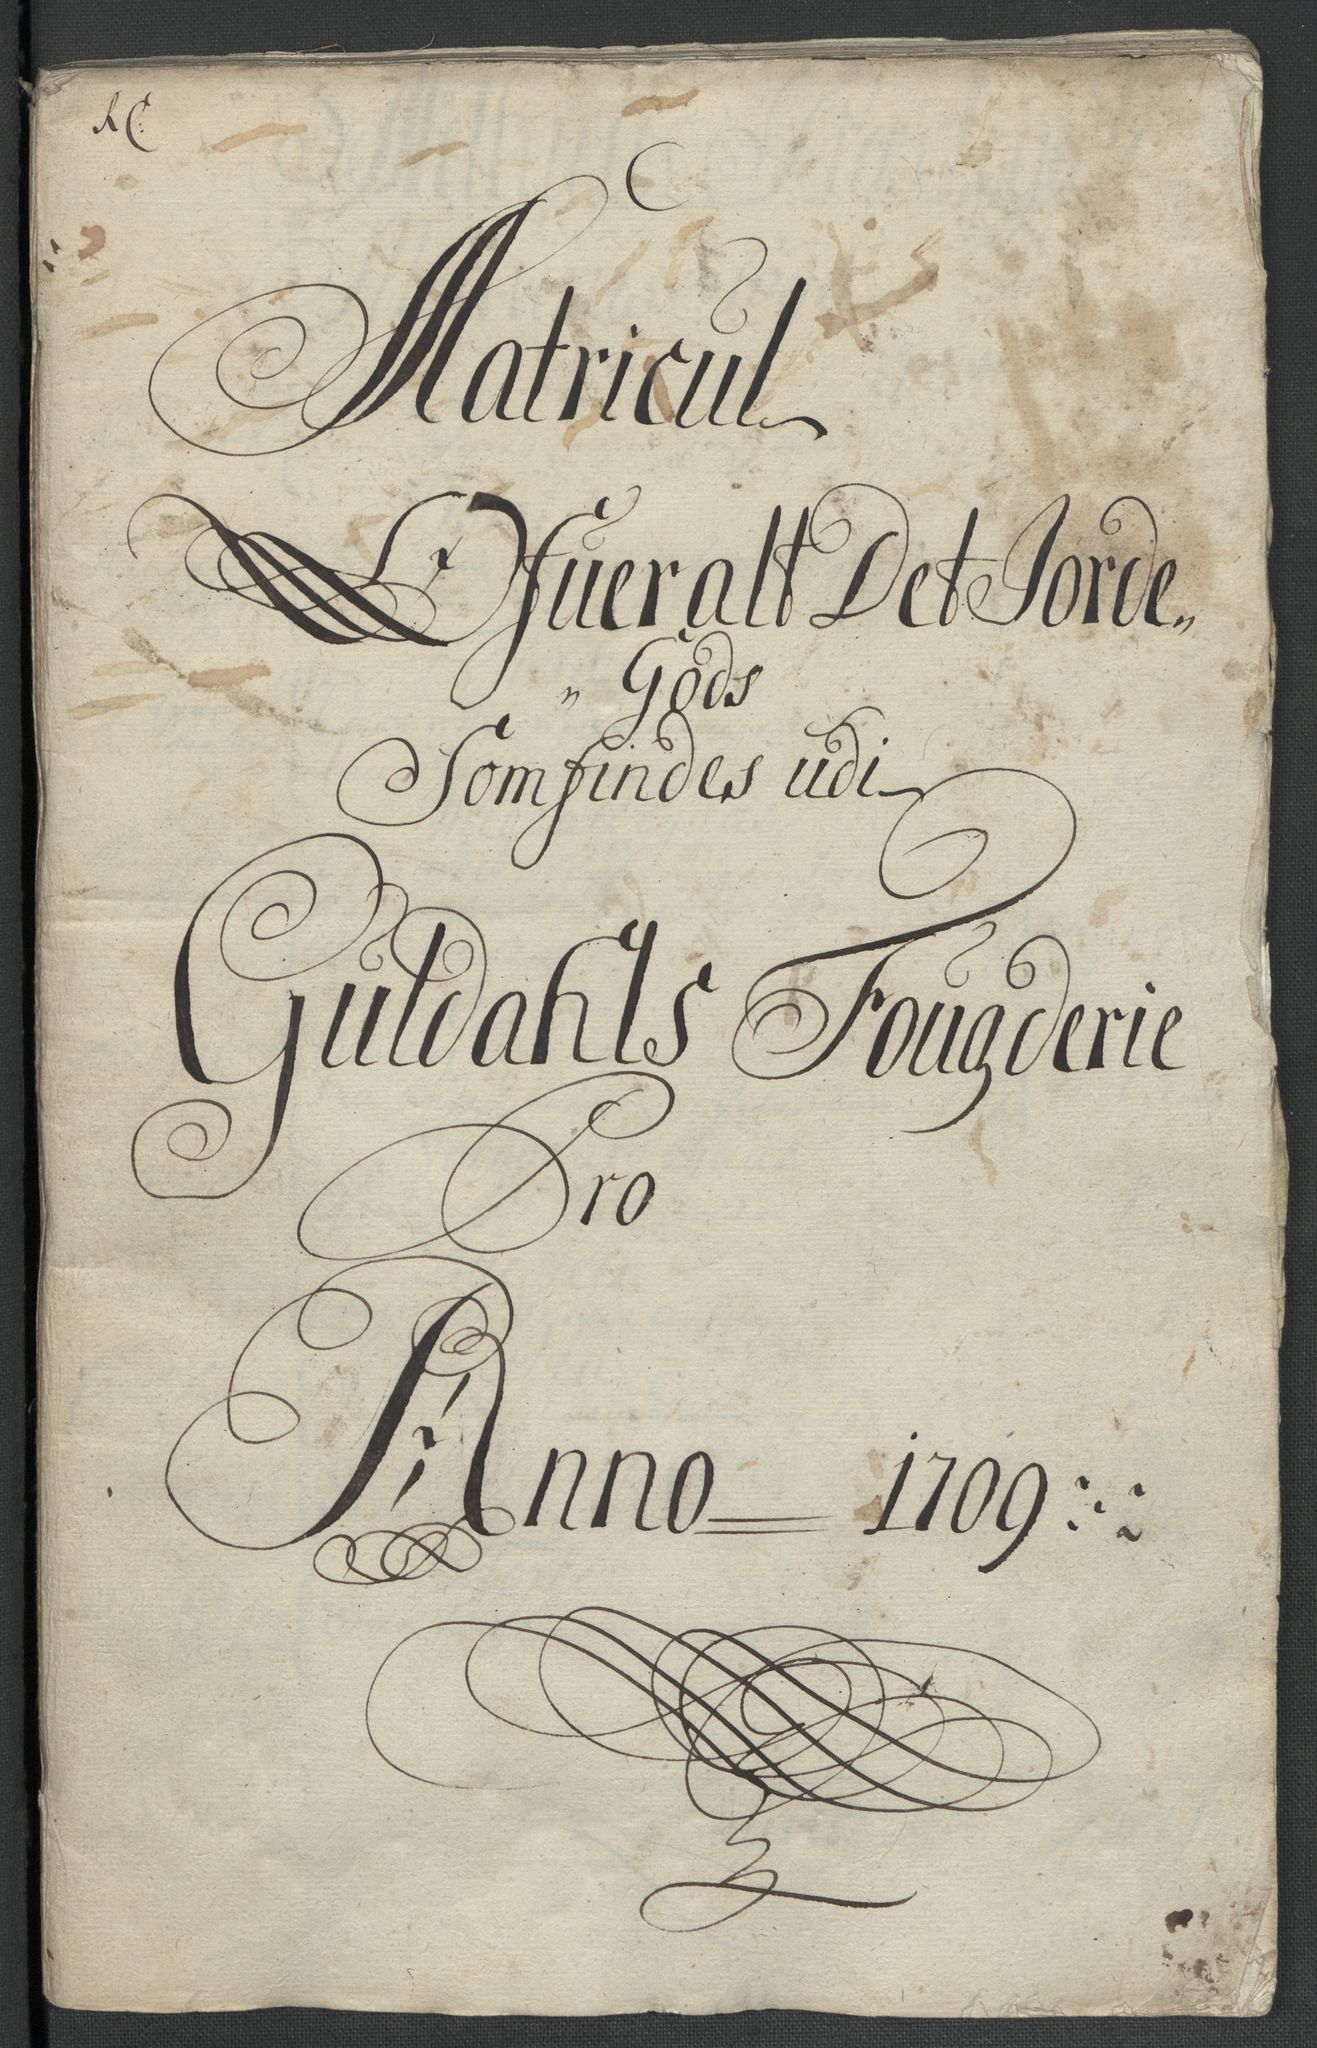 Matricul
Ofuer alt Det Jorde„
„ Gods
Som findes udi
Guldahls Fougderie
Pro
Anno 1709